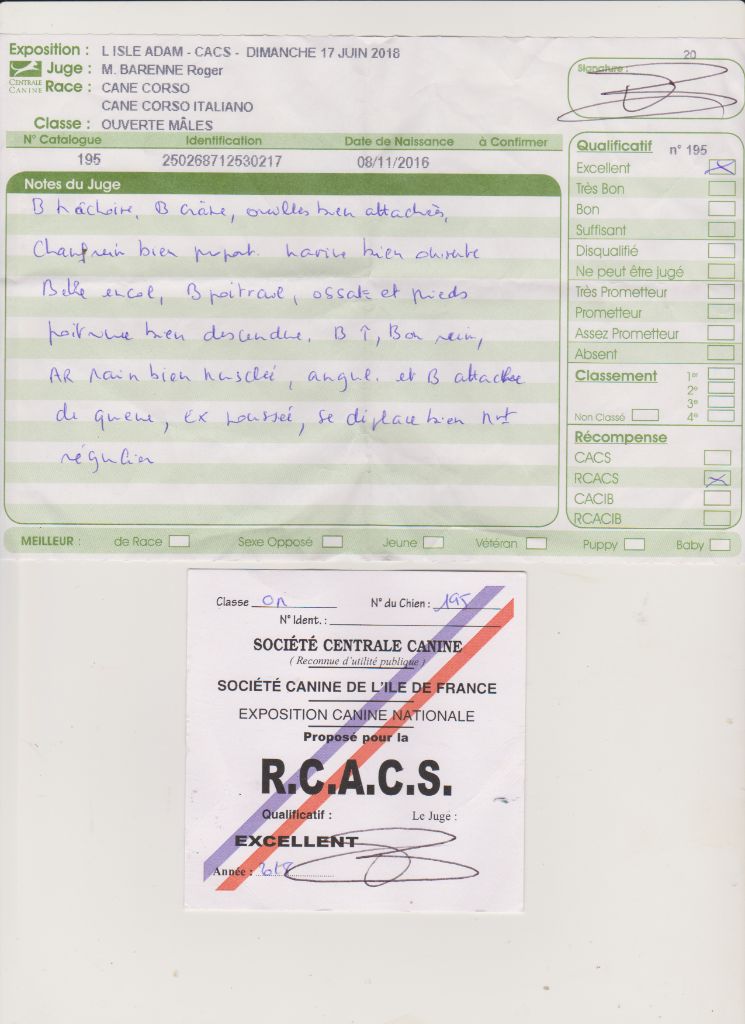 Exposition : L ISLE ADAM - CACS - DIMANCHE 17 JUIN 2018
20
CENTRALE CANINE
Juge : M. BARENNE Roger
Signature :
Race : CANE CORSO
CANE CORSO ITALIANO
Classe : OUVERTE MÂLES
N° Catalogue Identification Date de Naissance à Confirmer
195 250268712530217 08/11/2016
Notes du Juge
B Mâchoire, B crâne, oreilles bien attachées,
Chanfrein bien propot. narine bien ouverte
Belle encol, B poitrail, ossat et pieds
poitrine bien descendue. B T, Bon rein,
AR main bien musclé, angul. et B attache
de queue, Ex poussée, se déplace bien
régulier
Qualificatif n° 195
Excellent X
Très Bon
Bon
Suffisant
Disqualifié
Ne peut être jugé
Très Prometteur
Prometteur
Assez Prometteur
Absent
Classement 1er
2e
3e
Non Classé 4e
Récompense
CACS
RCACS X
CACIB
RCACIB
MEILLEUR : de Race Sexe Opposé Jeune Vétéran Puppy Baby
Classe On N° du Chien : 195
N° Ident. :
SOCIÉTÉ CENTRALE CANINE
( Reconnue d'utilité publique )
SOCIÉTÉ CANINE DE L'ILE DE FRANCE
EXPOSITION CANINE NATIONALE
Proposé pour la
R.C.A.C.S.
Qualificatif : Le Juge :
EXCELLENT
Année : 2018